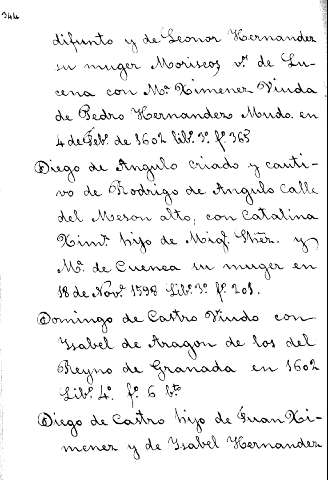 344
difunto y de Leonor Hernandez
su muger Moriscos v.ˢ de Lu-
cena con M.ᵃ Ximenez Viuda
de Pedro Hernandez Mudo. en
4 de Feb.º de 1602 lib.º 3.º f.º 365
Diego de Angulo criado y cauti-
vo de Rodrigo de Angulo Calle
del Meson alto, con Catalina
Xim.ᶻ hijo de Mig.ˡ Shez. y
M.ᵃ de Cuenca su muger en
18 de Nov.ᵉ 1598 Lib.º 3.º f.º 201.
Domingo de Castro Viudo con
Ysabel de Aragon de los del
Reyno de Granada en 1602
Lib.º 4.º f.º 6 b.ᵗᵒ
Diego de Castro hijo de Juan Xi-
menez y de Ysabel Hernandez